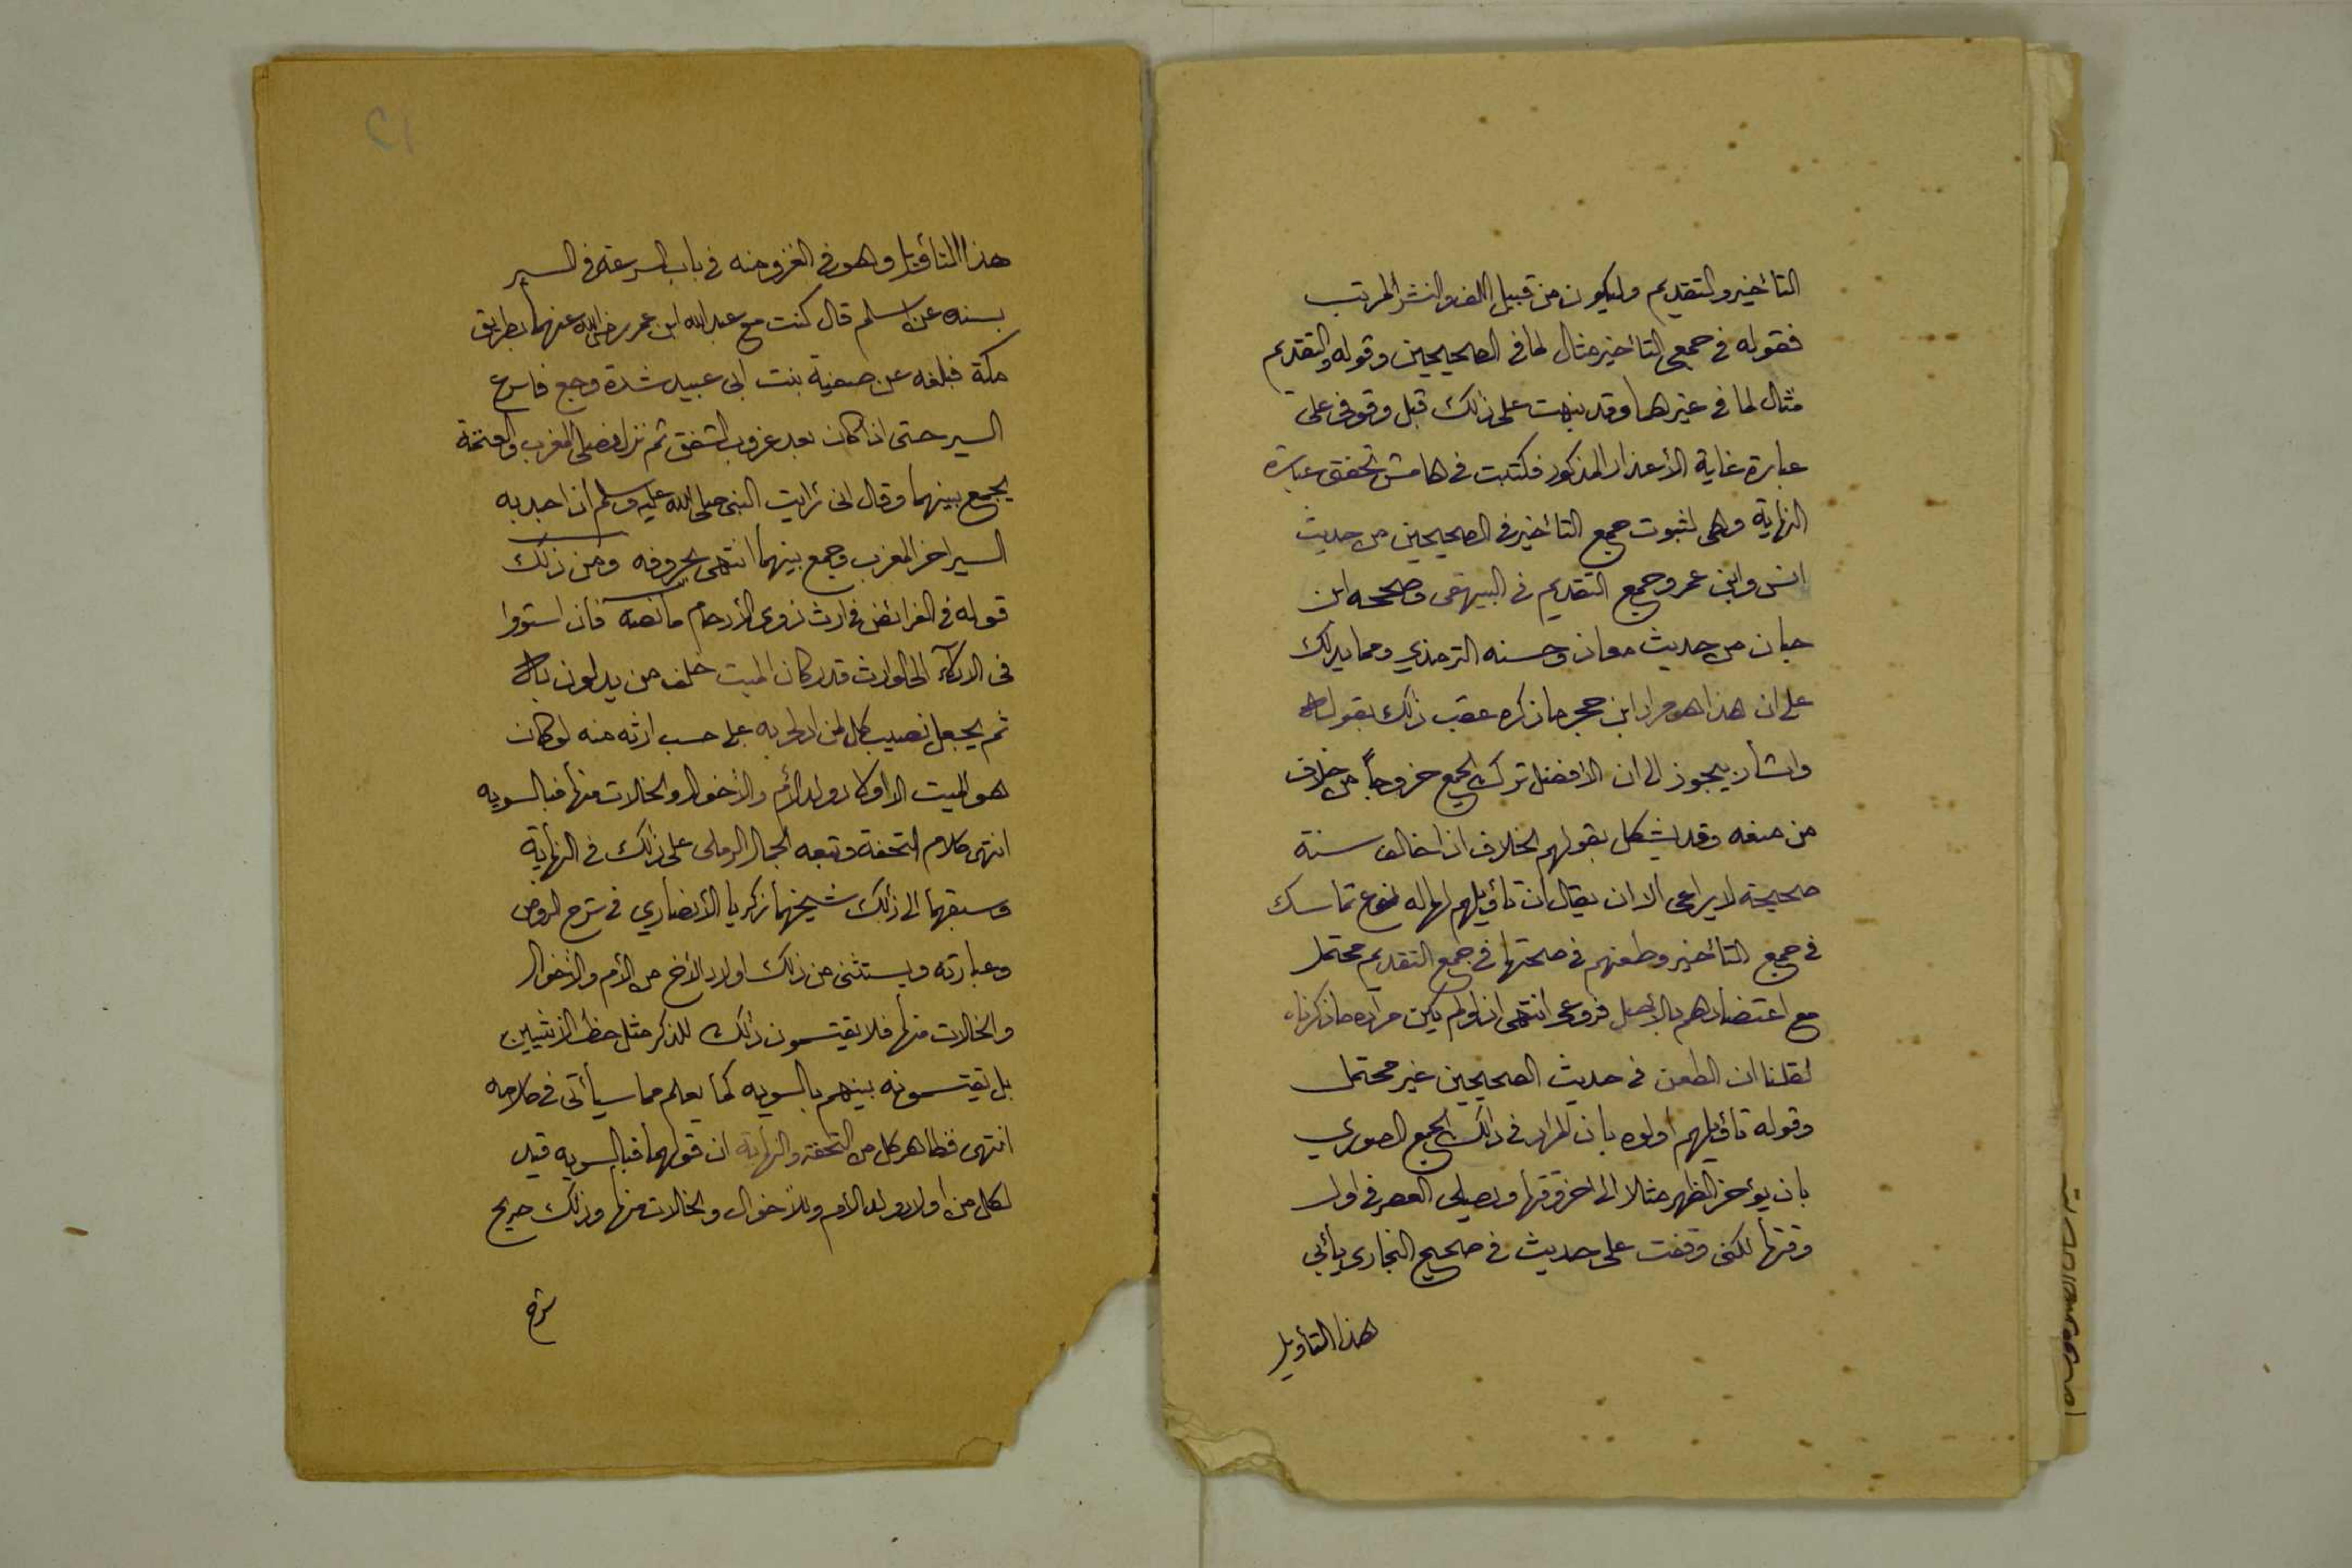 التأخير والتقديم وليكون من قبيل اللف والنشر المرتب
فقوله في جمعي التأخير مثال لما في الصحيحين وقوله والتقديم
مثال لما في غيرهما وقد نبهت على ذلك قبل وقوفي على
عبارة غاية الأعذار المذكور فكتبت في هامش تحفتي عبارة
النهاية وهي لثبوت جمع التأخير في الصحيحين من حديث
انس وابن عمر وجمع التقديم في البيهقي وصححه ابن
حبان من حديث معاذ وحسنه الترمذي ومما يدلك
على ان هذا هو مراد ابن حجر ما ذكره عقب ذلك بقوله
واشار بيجوز الى ان الافضل ترك الجمع خروجاً من خلاف
من منعه وقد يشكل بقولهم الخلاف اذا خالف سنة
صحيحة لا يراعى الا ان يقال ان تأويلهم لها له نوع تماسك
في جمع التأخير وطعنهم في صحتها في جمع التقديم محتمل
مع اعتضادهم بالأصل فروعي انتهى اذ لو لم يكن مراده ما ذكرناه
لقلنا ان الطعن في حديث الصحيحين غير محتمل
وقوله تأويلهم اولوه بان المراد في ذلك الجمع الصوري
بان يؤخر الظهر مثلا الى اخر وقتها ويصلي العصر في اول
وقتها لكني وقفت على حديث في صحيح البخاري يأبى
هذا التأويل
٢١
هذا التأويل وهو في الغزو منه في باب السرعة في السير
بسنده عن اسلم قال كنت مع عبد الله ابن عمر رضي الله عنهما بطريق
مكة فبلغه عن صفية بنت ابي عبيد شدة وجع فاسرع
السير حتى اذا كان بعد غروب الشفق ثم نزل فصلى المغرب والعتمة
يجمع بينهما وقال اني رأيت النبي صلى الله عليه وسلم اذا جد به
السير اخر المغرب وجمع بينهما انتهى بحروفه ومن ذلك
قوله في الفرائض في ارث ذوي الأرحام ما نصه فان استووا
في الادلآء الى الوارث قدر كان الميت خلف من يدلون به
ثم يجعل نصيب كل لمن ادلى به على حسب ارثه منه لو كان
هو الميت الا اولاد ولد الأم والأخوال والخالات منها فبالسويه
انتهى كلام التحفة وتبعه الجمال الرملي على ذلك في النهاية
وسبقهما الى ذلك شيخهما زكريا الأنصاري في شرح الروض
وعبارته ويستثنى من ذلك اولاد الاخ من الأم والأخوال
والخالات منها فلا يقتسمون ذلك للذكر مثل حظ الأنثيين
بل يقتسمونه بينهم بالسويه كما يعلم مما سيأتي في كلامه
انتهى فظاهر كل من التحفة والنهاية ان قولهما فبالسويه قيد
لكل من اولاد ولد الأم وللأخوال والخالات منها وذلك صريح